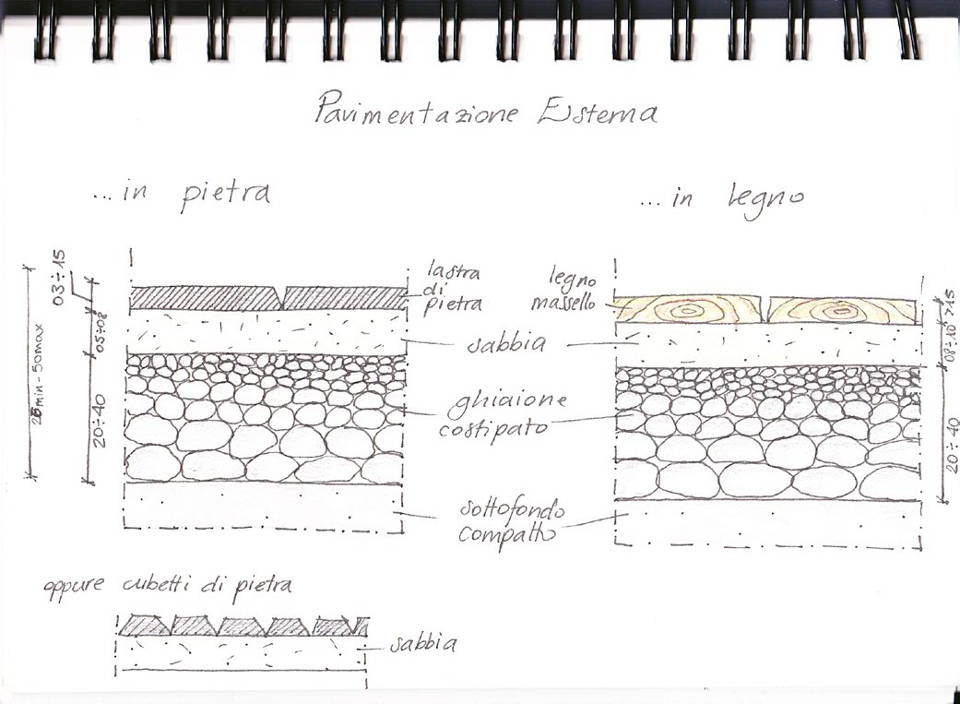 Pavimentazione Esterna
...in pietra
...in legno
03÷15
05÷08
20÷40
lastra
di
pietra
legno
massello
sabbia
ghiaione
costipato
sottofondo
compatto
>15
08÷10
20÷40
oppure cubetti di pietra
sabbia